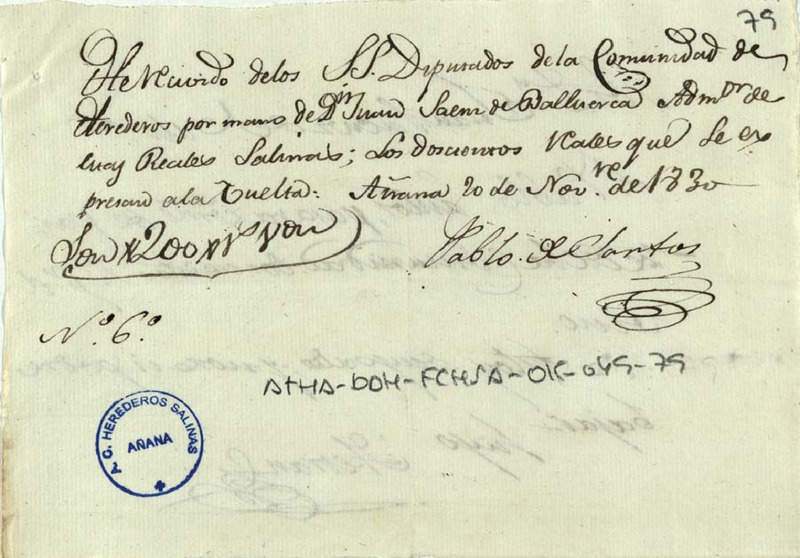 79
He recivido de los S.S. Diputados de la Comunidad de
Herederos por mano de Dn Juan Saenz de Valluerca Admor. de
estas Reales Salinas; Los doscientos reales que se ex
presan a la Vuelta: Añana 20 de Novre. de 1830
Son # 200 # rs von
Pablo. de Santos
N.º 6.º
ATHA-DDH-FCHSA-OK-049-79
C. HEREDEROS SALINAS
AÑANA